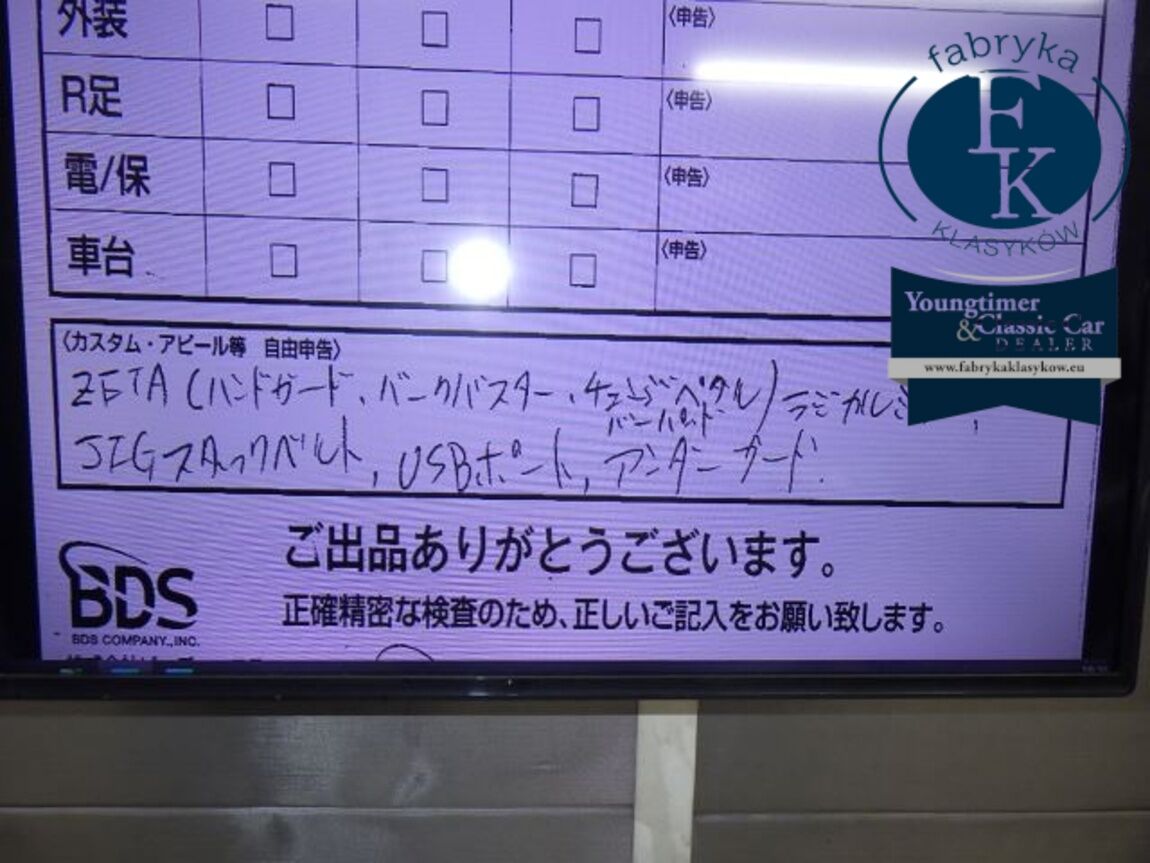 外装 □ □ □ 〈申告〉
R足 □ □ □ 〈申告〉
電/保 □ □ □ 〈申告〉
車台 □ □ □ 〈申告〉
〈カスタム・アピール等 自由申告〉
ZETA (ハンドガード、バークバスター、ペダル)
バーパッド
USBポート, アンダーガード.
ご出品ありがとうございます。
正確精密な検査のため、正しいご記入をお願い致します。
BDS
BDS COMPANY.,INC.
fabryka
FK
KLASYKÓW
Youngtimer
&Classic Car
DEALER
www.fabrykaklasykow.eu